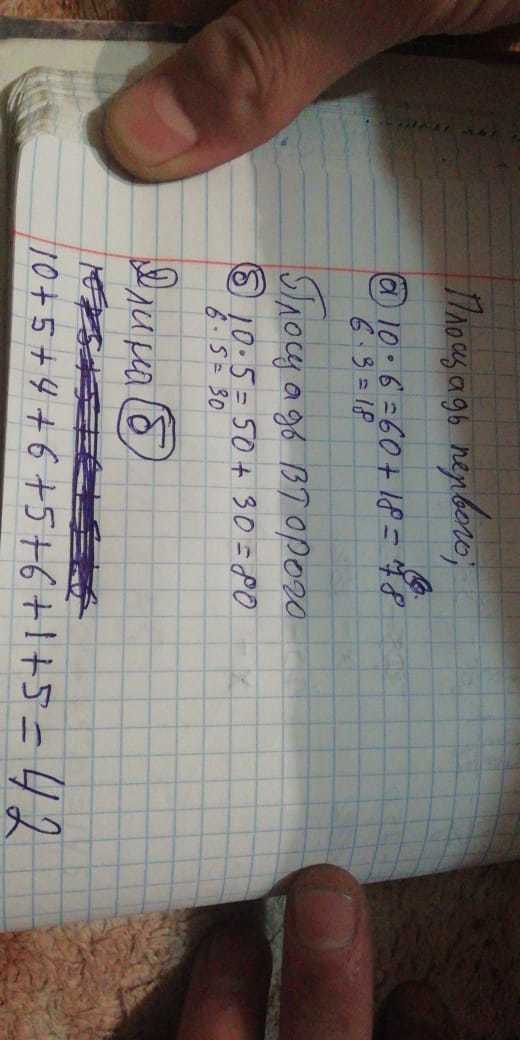 Площадь первого;
а 10·6=60+18=78
6·3=18
Площадь второго
б 10·5=50+30=80
6·5=30
Длина б
10+5+4+6+5+6+1+5=42